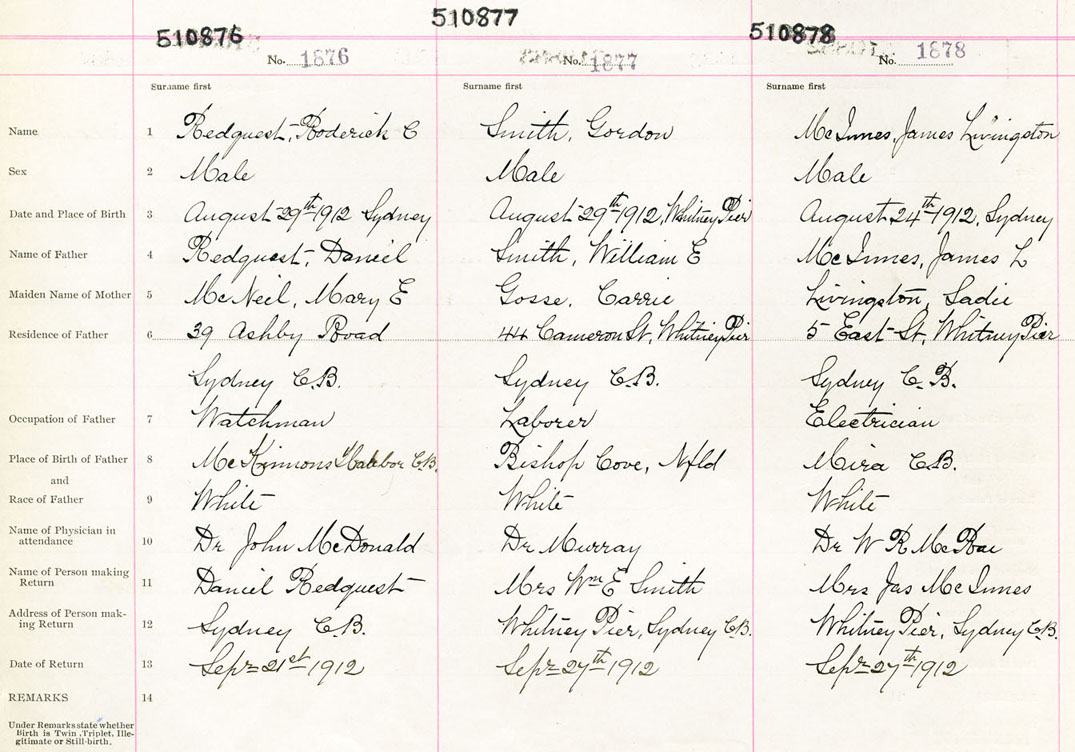 510876 510877 510878
No. 1876 No. 1877 No. 1878
Surname first Surname first Surname first
Name 1 Redquest, Roderick C Smith, Gordon McInnes, James Livingston
Sex 2 Male Male Male
Date and Place of Birth 3 August 29th 1912 Sydney August 29th 1912, Whitney Pier August 24th 1912, Sydney
Name of Father 4 Redquest, Daniel Smith, William E McInnes, James L
Maiden Name of Mother 5 McNeil, Mary E Gosse, Carrie Livingston, Sadie
Residence of Father 6 39 Ashby Road 44 Cameron St, Whitney Pier 5 East St, Whitney Pier
Sydney C.B. Sydney C.B. Sydney C.B.
Occupation of Father 7 Watchman Laborer Electrician
Place of Birth of Father 8 McKinnons Harbor C.B. Bishop Cove, Nfld Mira C.B.
and
Race of Father 9 White White White
Name of Physician in
attendance 10 Dr John McDonald Dr Murray Dr W R McRae
Name of Person making
Return 11 Daniel Redquest Mrs Wm E Smith Mrs Jas McInnes
Address of Person mak-
ing Return 12 Sydney C.B. Whitney Pier, Sydney C.B. Whitney Pier, Sydney C.B.
Date of Return 13 Sept 21st 1912 Sept 27th 1912 Sept 27th 1912
REMARKS 14
Under Remarks state whether
Birth is Twin, Triplet, Ille-
gitimate or Still-birth.